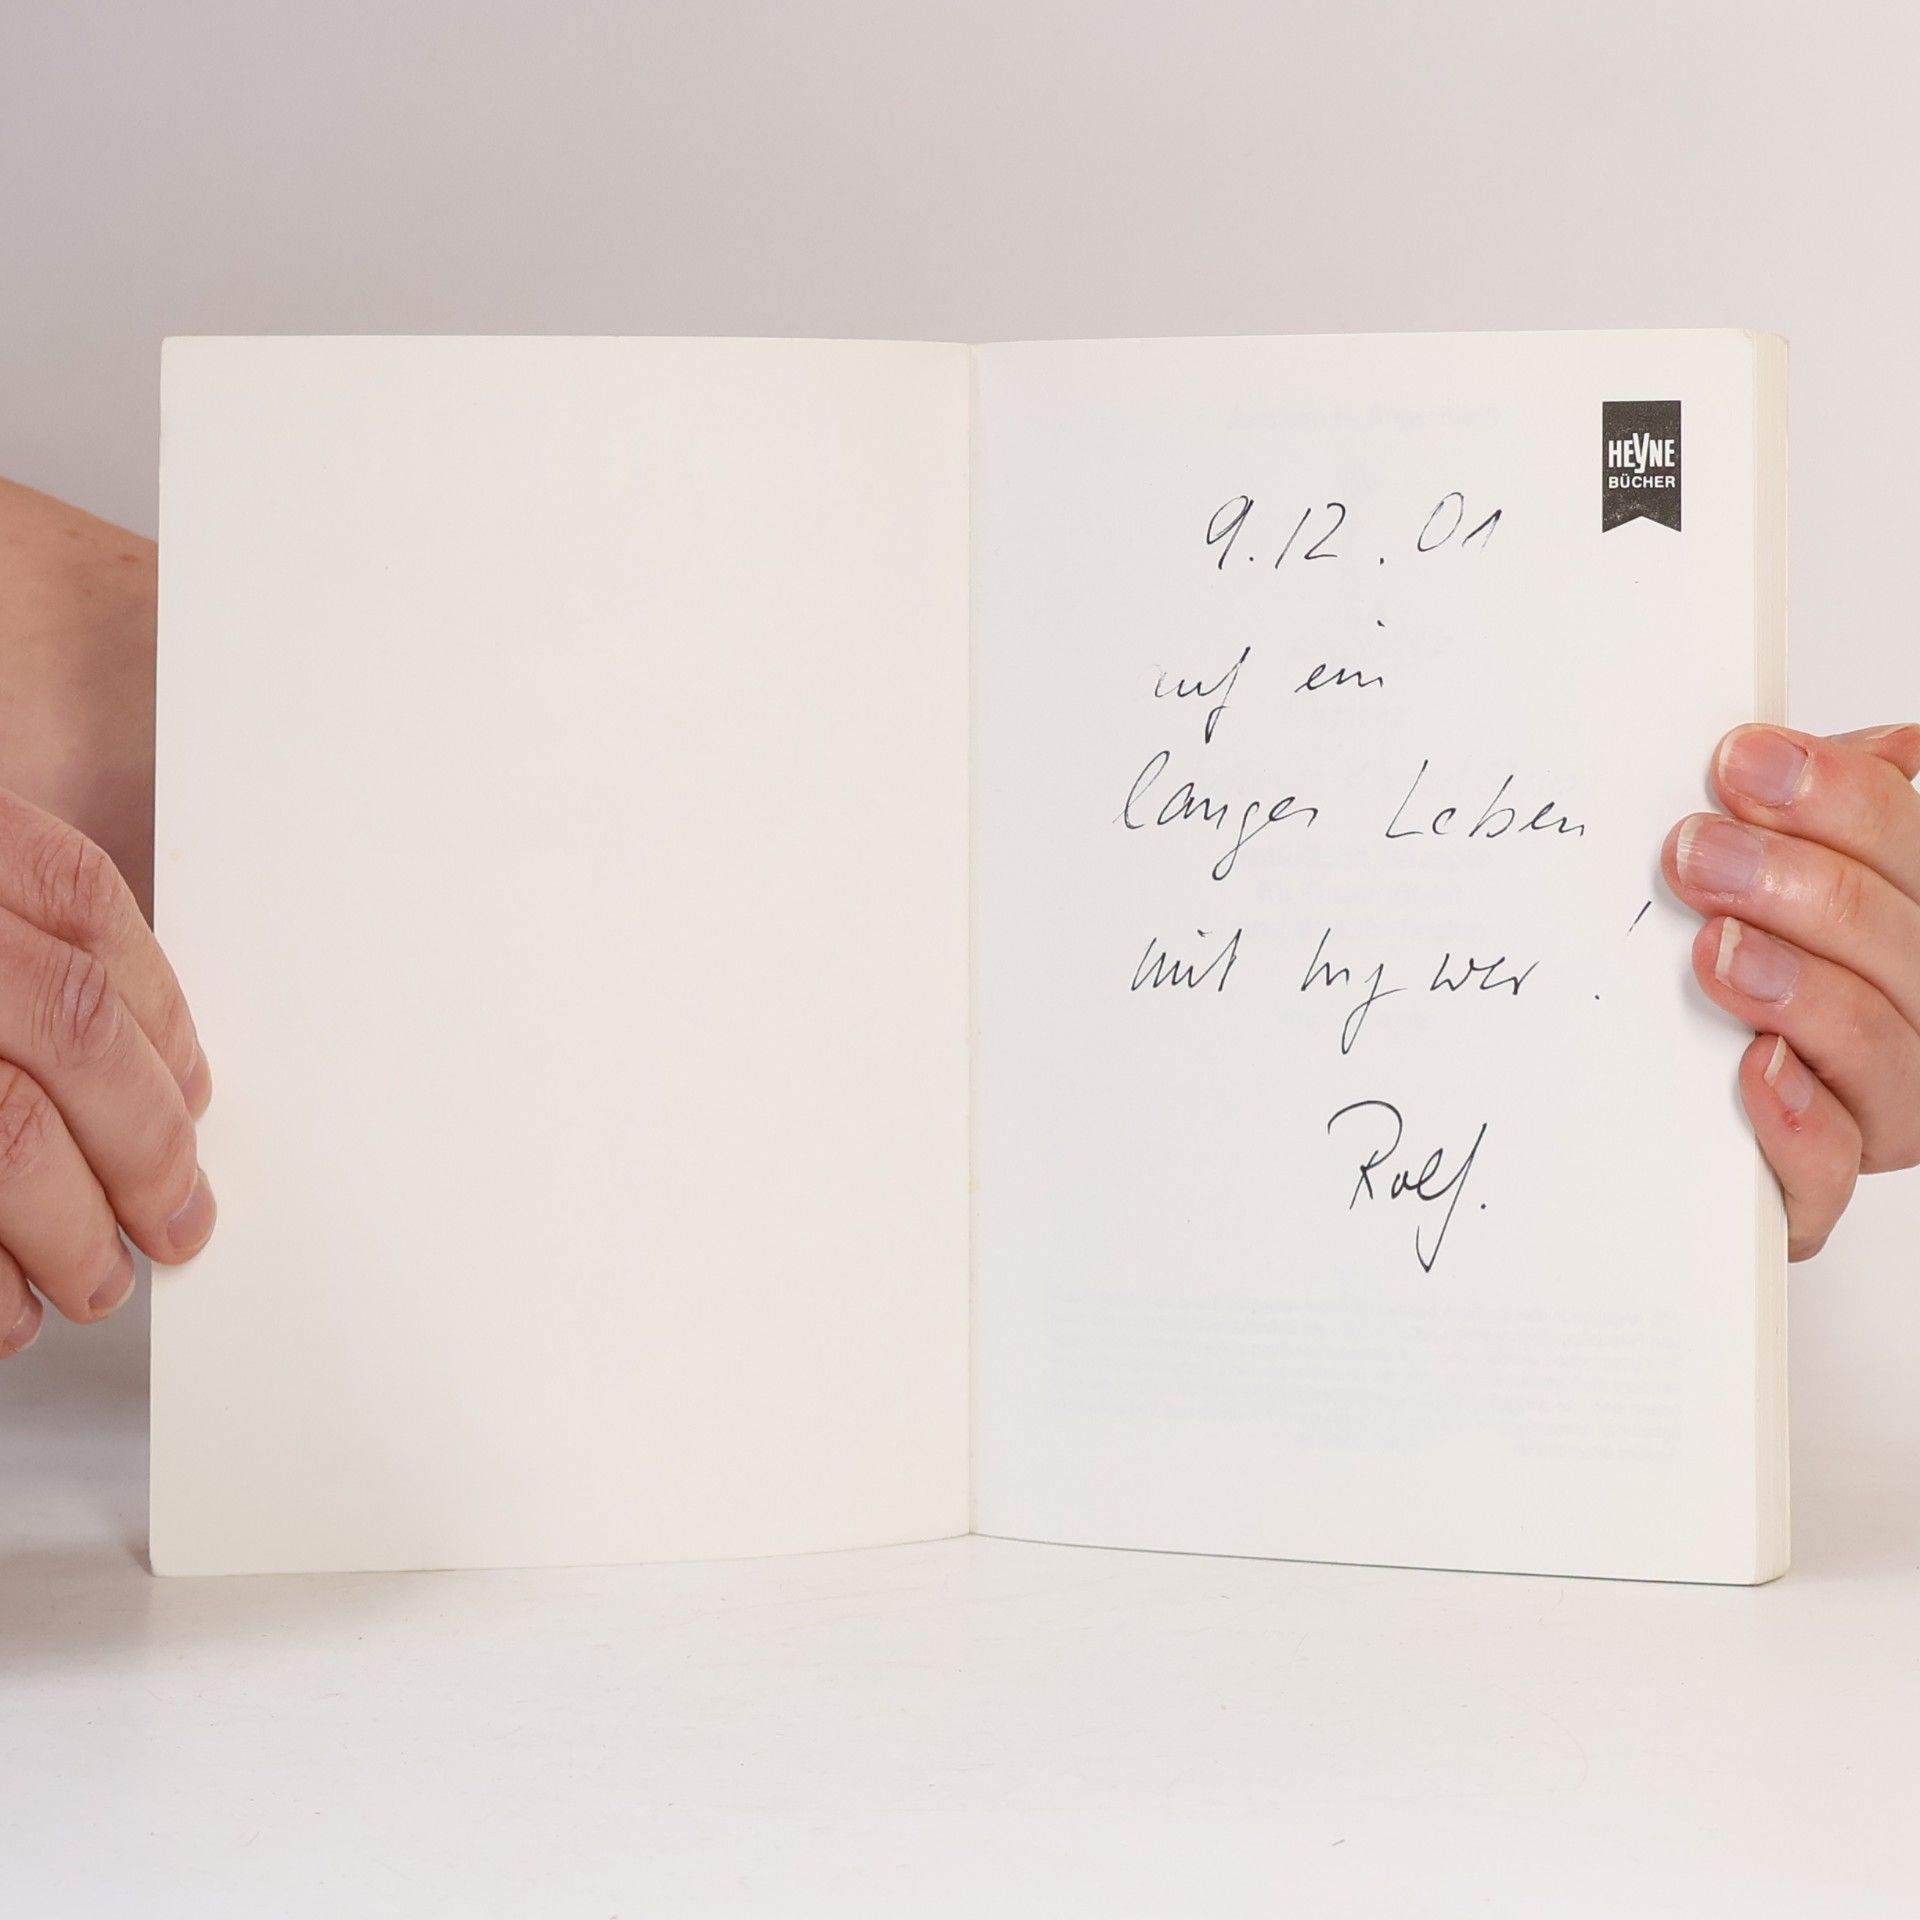 HEYNE
BÜCHER
9.12.01
auf ein
langes Leben
mit Ingwer!
Rolf.